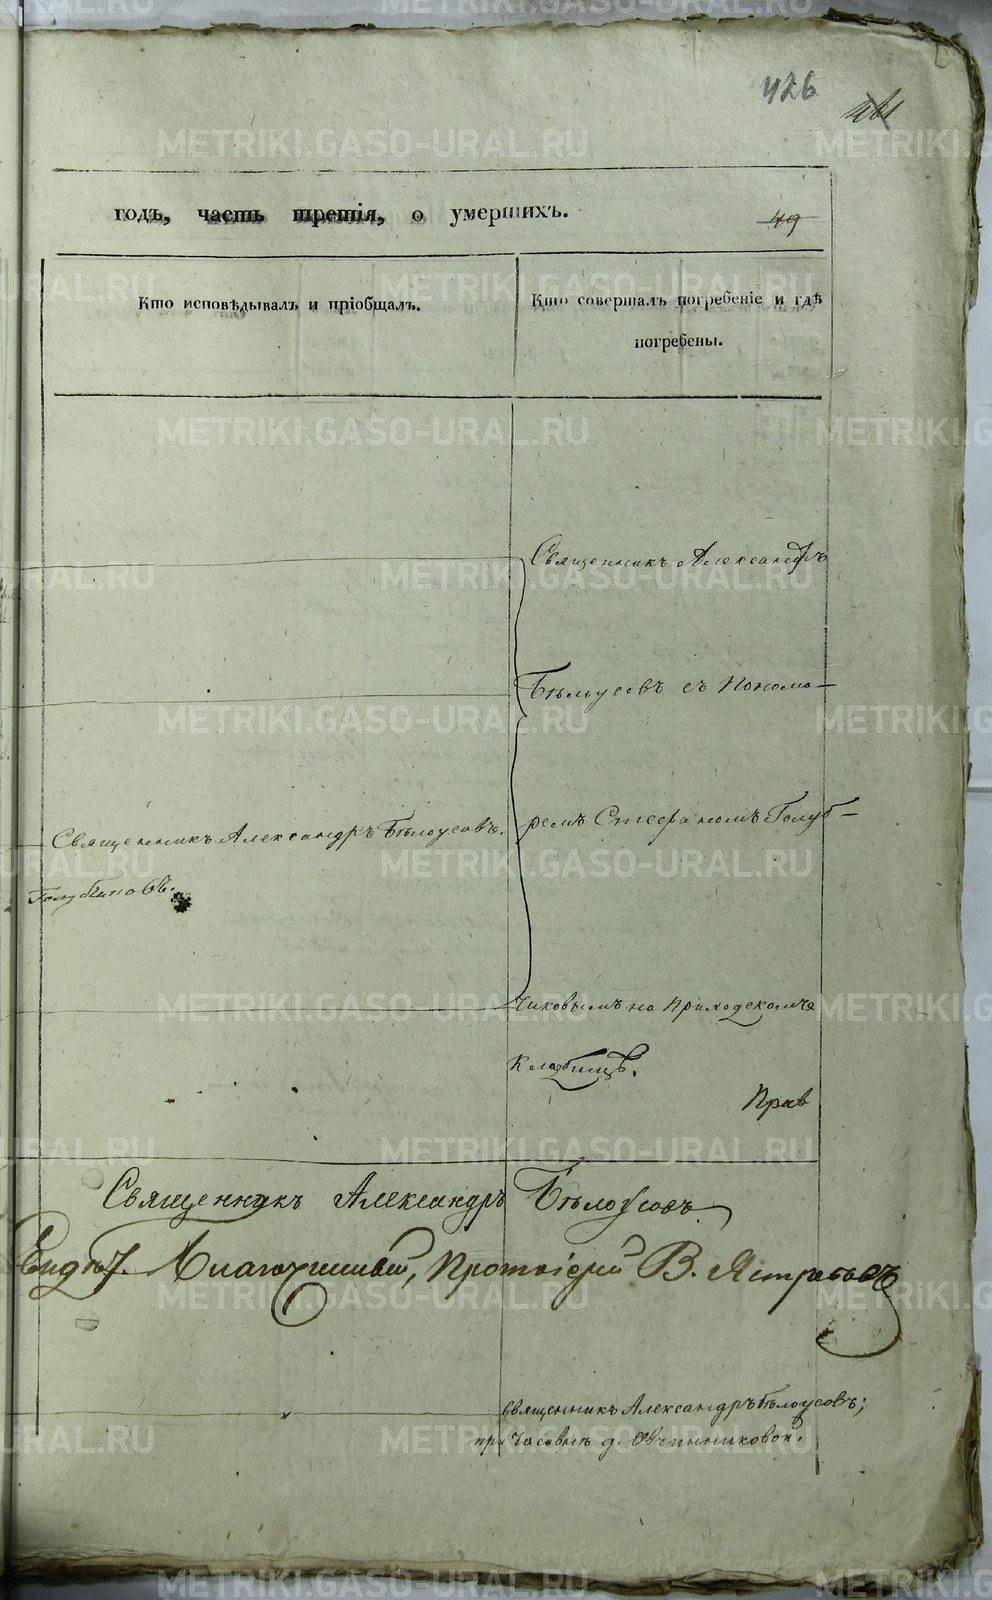 426
461
годъ, часть третія, о умершихъ.
49
Кто исповѣдывалъ и пріобщалъ.
Кто совершалъ погребеніе и гдѣ
погребены.
Священникъ Александръ
Бѣлоусовъ съ Понома-
Священникъ Александръ Бѣлоусовъ.
ремъ Стефаномъ Голуб-
чиковымъ на Приходскомъ
Кладбищѣ.
Священникъ Александръ Бѣлоусовъ
Благочинный, Протоіерей В. Ястребовъ
Священникъ Александръ Бѣлоусовъ;
при Часовнѣ д. Овчинниковой.
METRIKI.GASO-URAL.RU